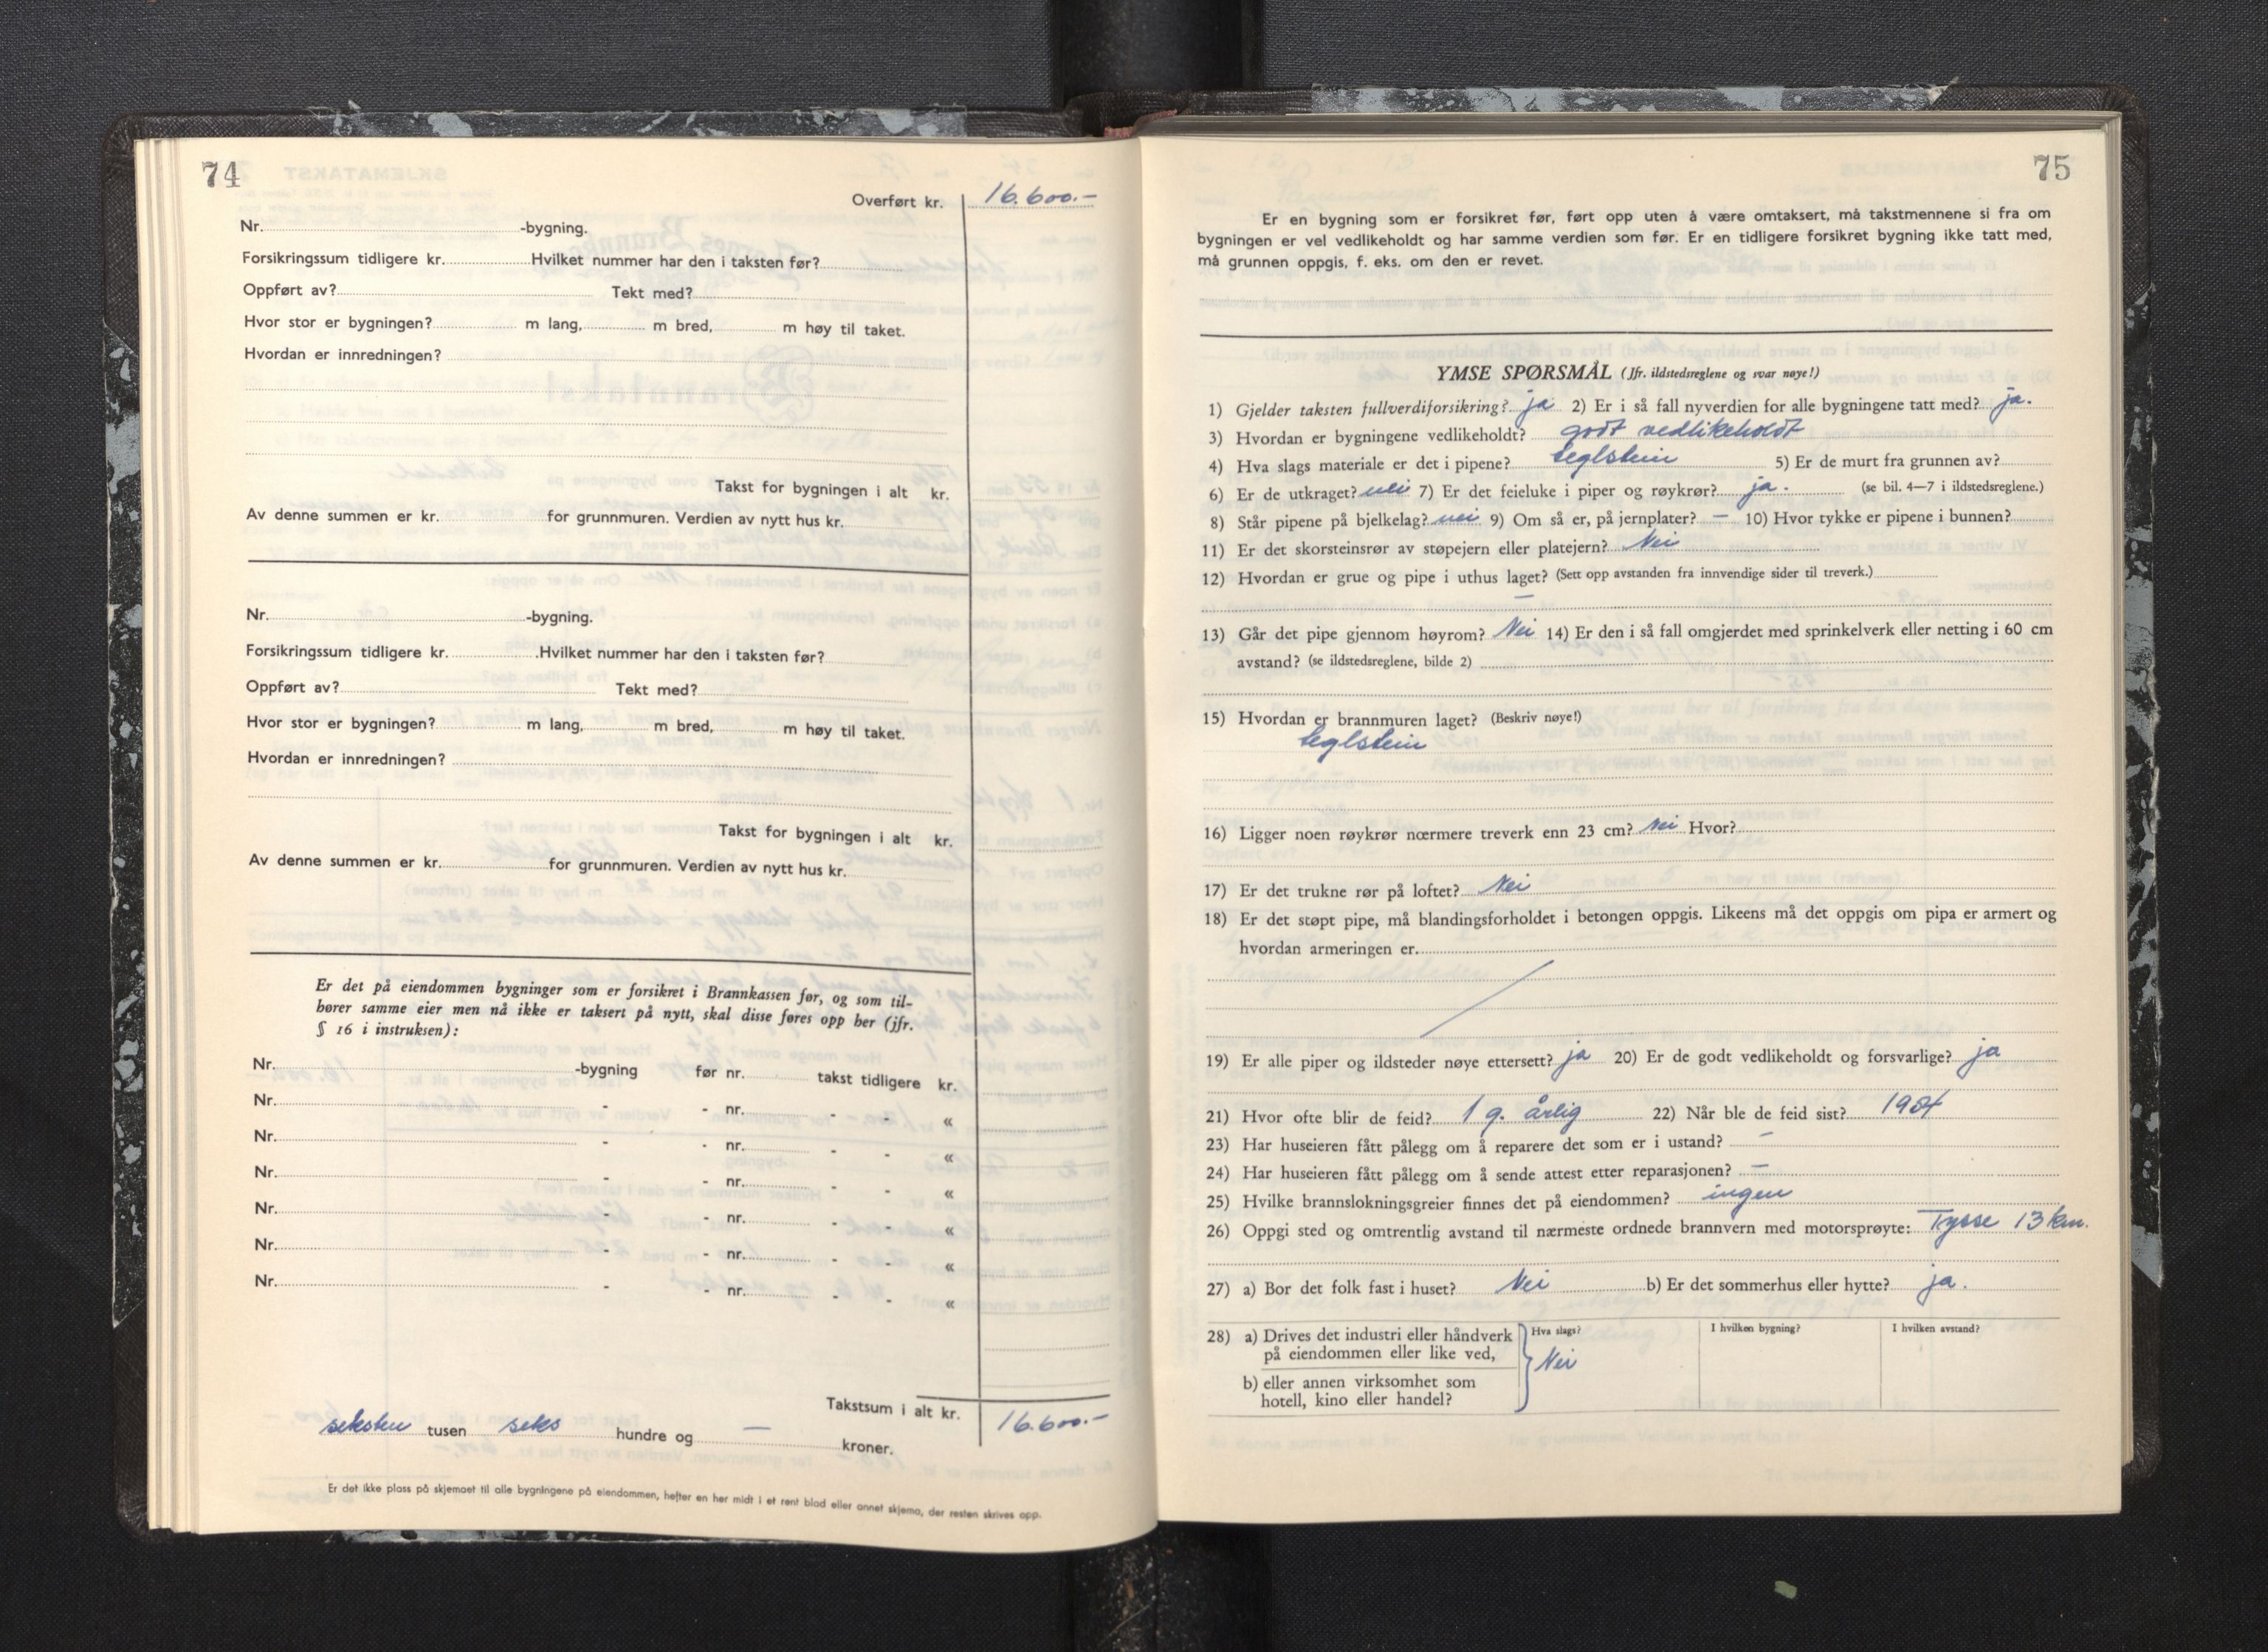 74
Overført kr. 16.600.-
Nr. -bygning.
Forsikringssum tidligere kr. Hvilket nummer har den i taksten før?
Oppført av? Tekt med?
Hvor stor er bygningen? m lang, m bred, m høy til taket.
Hvordan er innredningen?
Takst for bygningen i alt kr.
Av denne summen er kr. for grunnmuren. Verdien av nytt hus kr.
Nr. -bygning.
Forsikringssum tidligere kr. Hvilket nummer har den i taksten før?
Oppført av? Tekt med?
Hvor stor er bygningen? m lang, m bred, m høy til taket.
Hvordan er innredningen?
Takst for bygningen i alt kr.
Av denne summen er kr. for grunnmuren. Verdien av nytt hus kr.
Er det på eiendommen bygninger som er forsikret i Brannkassen før, og som til-
hører samme eier men nå ikke er taksert på nytt, skal disse føres opp her (jfr.
§ 16 i instruksen):
Nr. -bygning før nr. takst tidligere kr.
Nr. - - nr. - - «
Nr. - - nr. - - «
Nr. - - nr. - - «
Nr. - - nr. - - «
Nr. - - nr. - - «
Nr. - - nr. - - «
Takstsum i alt kr. 16.600.-
seksten tusen seks hundre og — kroner.
Er det ikke plass på skjemaet til alle bygningene på eiendommen, hefter en her midt i et rent blad eller annet skjema, der resten skrives opp.
75
Er en bygning som er forsikret før, ført opp uten å være omtaksert, må takstmennene si fra om
bygningen er vel vedlikeholdt og har samme verdien som før. Er en tidligere forsikret bygning ikke tatt med,
må grunnen oppgis, f. eks. om den er revet.
YMSE SPØRSMÅL (Jfr. ildstedsreglene og svar nøye!)
1) Gjelder taksten fullverdiforsikring? ja 2) Er i så fall nyverdien for alle bygningene tatt med? ja.
3) Hvordan er bygningene vedlikeholdt? godt vedlikeholdt
4) Hva slags materiale er det i pipene? teglstein 5) Er de murt fra grunnen av?
6) Er de utkraget? nei 7) Er det feieluke i piper og røykrør? ja. (se bil. 4—7 i ildstedsreglene.)
8) Står pipene på bjelkelag? nei 9) Om så er, på jernplater? — 10) Hvor tykke er pipene i bunnen?
11) Er det skorsteinsrør av støpejern eller platejern? Nei
12) Hvordan er grue og pipe i uthus laget? (Sett opp avstanden fra innvendige sider til treverk.)
—
13) Går det pipe gjennom høyrom? Nei 14) Er den i så fall omgjerdet med sprinkelverk eller netting i 60 cm
avstand? (se ildstedsreglene, bilde 2)
15) Hvordan er brannmuren laget? (Beskriv nøye!)
teglstein
16) Ligger noen røykrør nærmere treverk enn 23 cm? Nei Hvor?
17) Er det trukne rør på loftet? Nei
18) Er det støpt pipe, må blandingsforholdet i betongen oppgis. Likeens må det oppgis om pipa er armert og
hvordan armeringen er.
19) Er alle piper og ildsteder nøye ettersett? ja 20) Er de godt vedlikeholdt og forsvarlige? ja
21) Hvor ofte blir de feid? 1 g. årlig 22) Når ble de feid sist? 1954
23) Har huseieren fått pålegg om å reparere det som er i ustand? —
24) Har huseieren fått pålegg om å sende attest etter reparasjonen? —
25) Hvilke brannslokningsgreier finnes det på eiendommen? ingen
26) Oppgi sted og omtrentlig avstand til nærmeste ordnede brannvern med motorsprøyte: Tysse 13 km.
27) a) Bor det folk fast i huset? Nei b) Er det sommerhus eller hytte? ja.
28) a) Drives det industri eller håndverk Hva slags? I hvilken bygning? I hvilken avstand?
på eiendommen eller like ved, Nei
b) eller annen virksomhet som
hotell, kino eller handel?